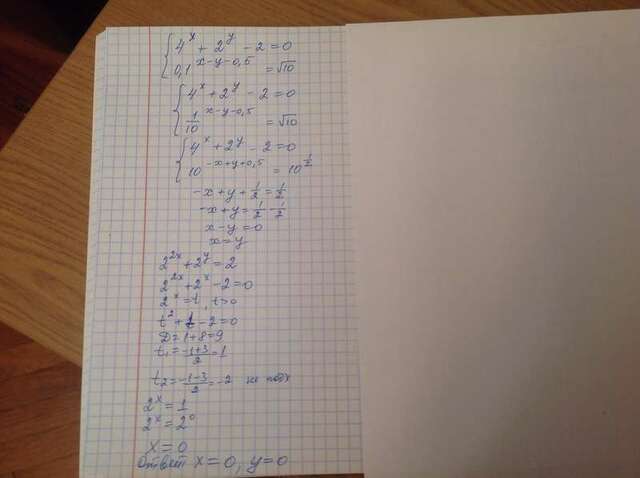 4^x + 2^y - 2 = 0
0,1^{x-y-0,5} = √10
4^x + 2^y - 2 = 0
1/10^{x-y-0,5} = √10
4^x + 2^y - 2 = 0
10^{-x+y+0,5} = 10^{1/2}
-x + y + 1/2 = 1/2
-x + y = 1/2 - 1/2
x - y = 0
x = y
2^{2x} + 2^y = 2
2^{2x} + 2^x - 2 = 0
2^x = t, t>0
t^2 + t - 2 = 0
D = 1 + 8 = 9
t_1 = (-1+3)/2 = 1
t_2 = (-1-3)/2 = -2 не подх
2^x = 1
2^x = 2^0
x = 0
Ответ x = 0, y = 0